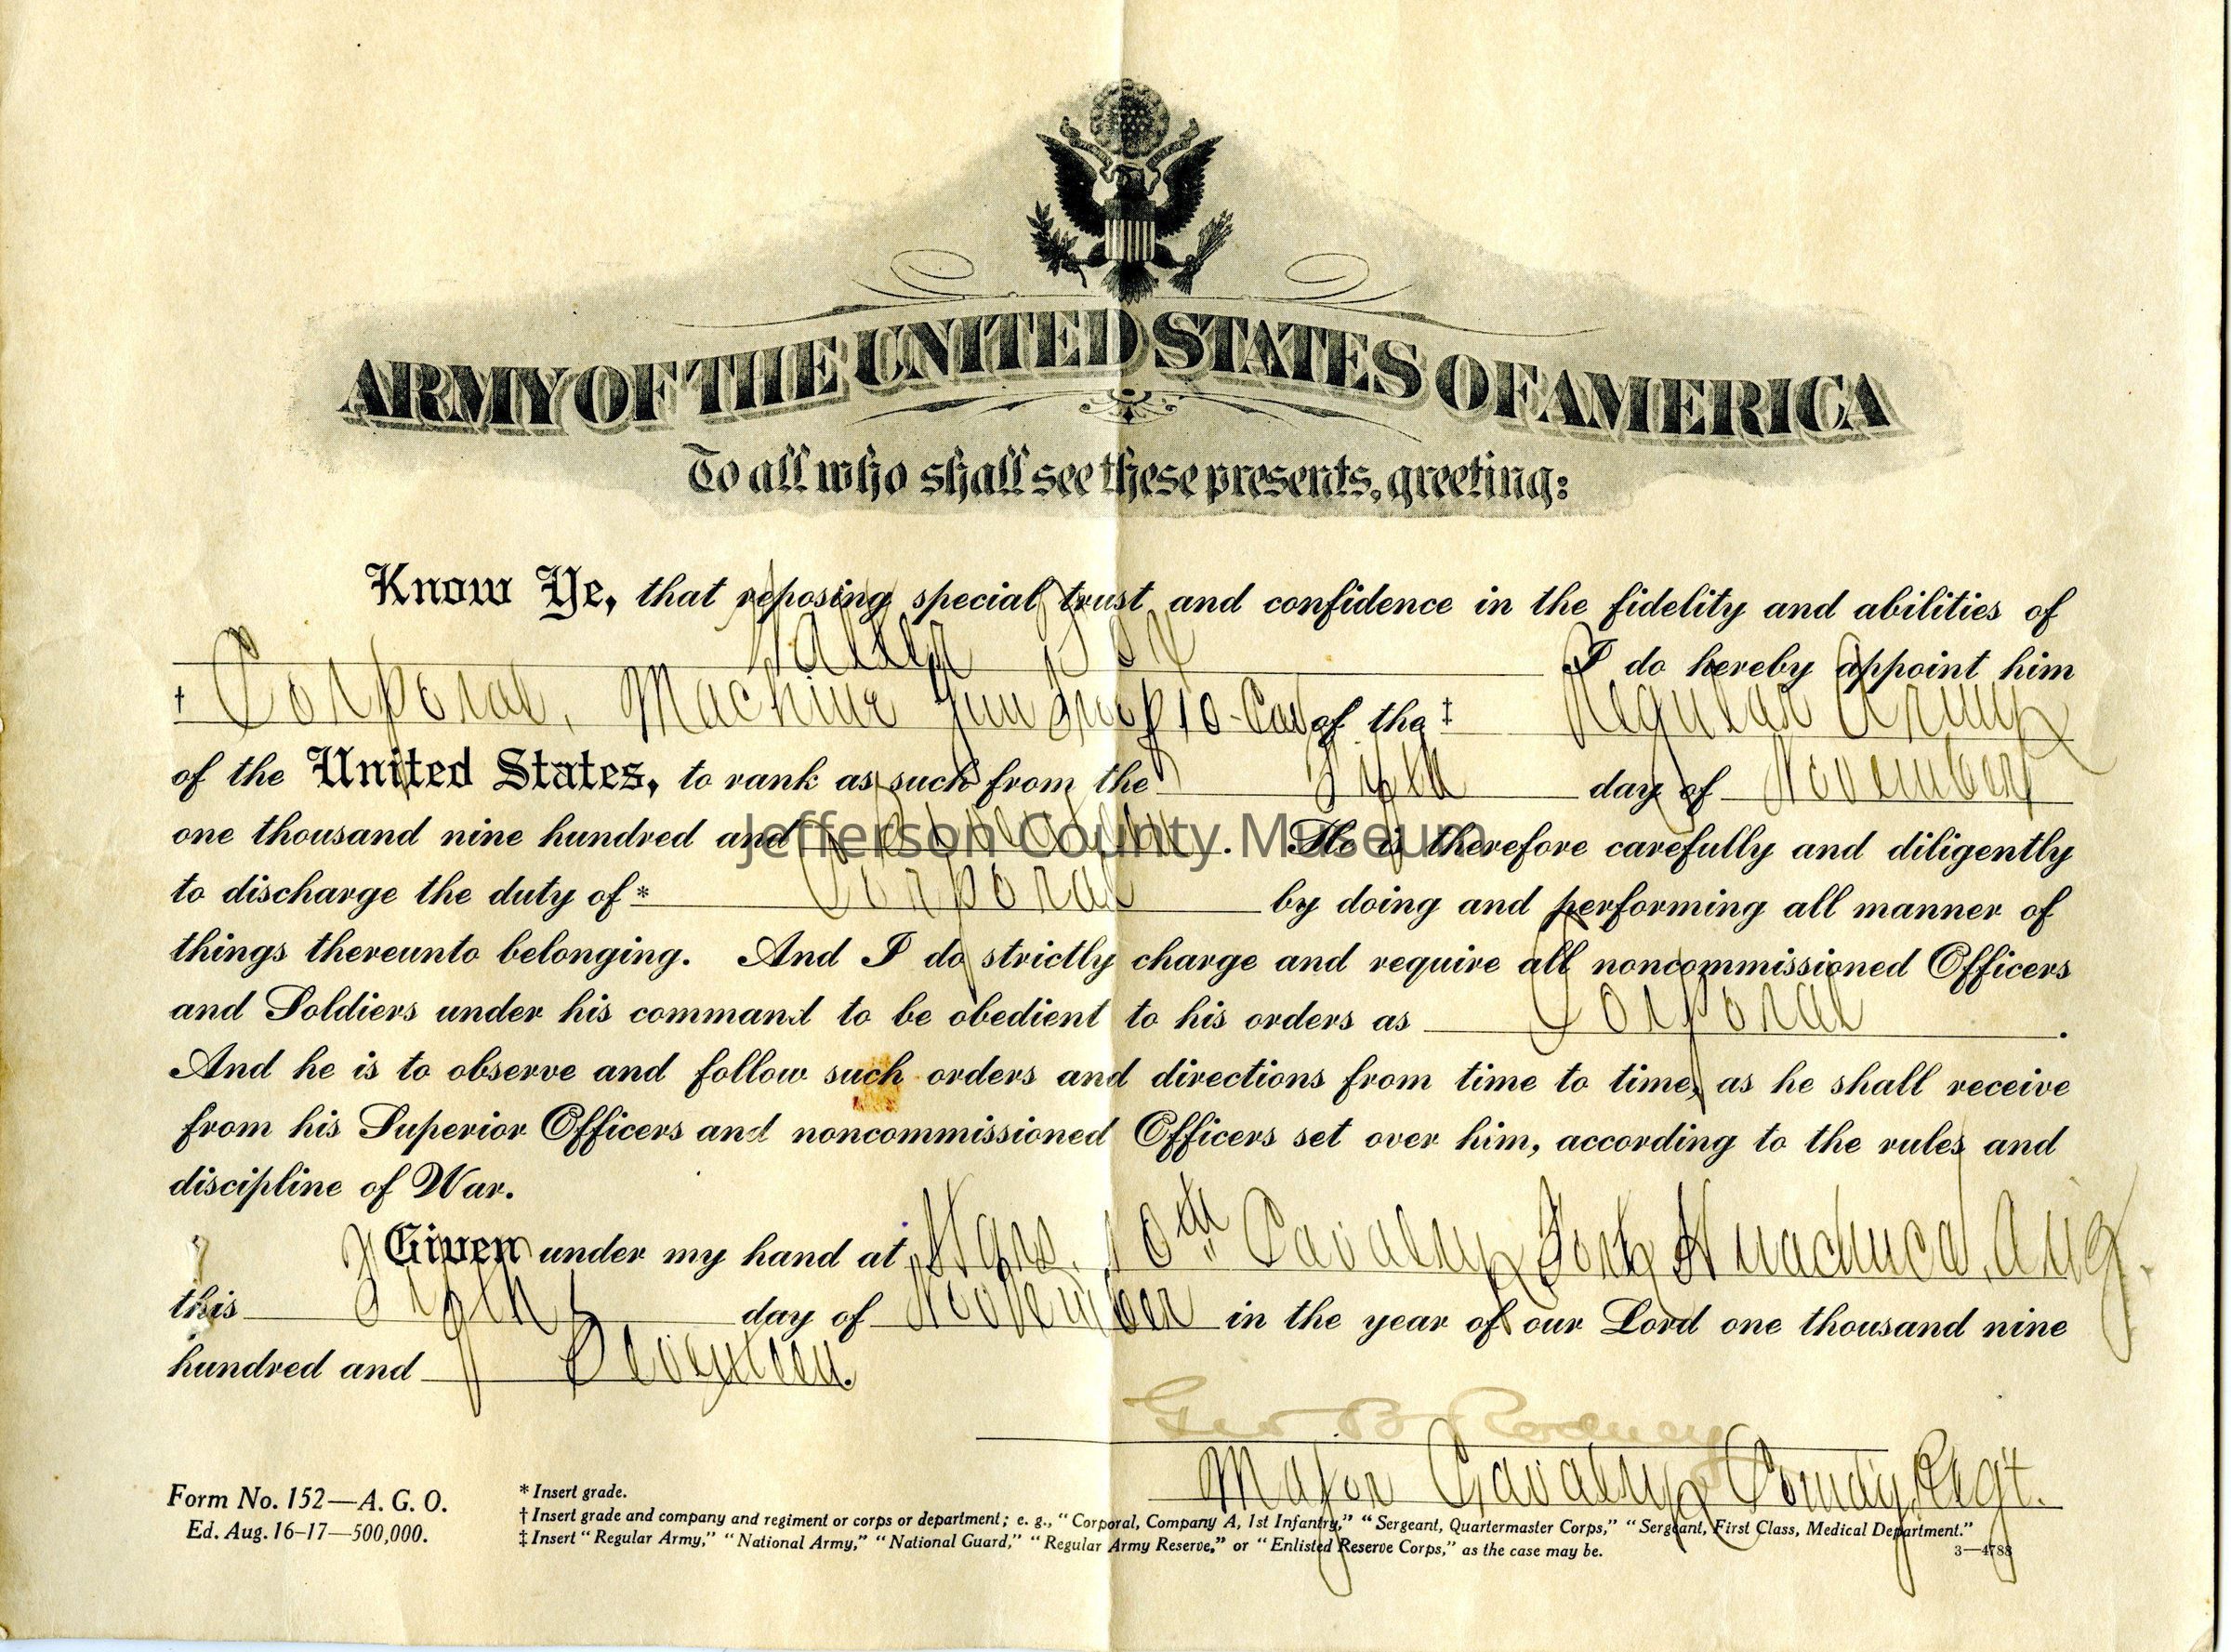 ARMY OF THE UNITED STATES OF AMERICA
To all who shall see these presents, greeting:
Know Ye, that reposing special trust and confidence in the fidelity and abilities of
Walter I do hereby appoint him
† Corporal, Machine Gun Troop 10-Cav of the ‡ Regular Army
of the United States, to rank as such from the Fifth day of November
one thousand nine hundred and Seventeen. He is therefore carefully and diligently
Jefferson County Museum
to discharge the duty of * Corporal by doing and performing all manner of
things thereunto belonging. And I do strictly charge and require all noncommissioned Officers
and Soldiers under his command to be obedient to his orders as Corporal.
And he is to observe and follow such orders and directions from time to time, as he shall receive
from his Superior Officers and noncommissioned Officers set over him, according to the rules and
discipline of War.
Given under my hand at Hqrs. 10th Cavalry Fort Huachuca, Ariz.
this Fifth day of November in the year of our Lord one thousand nine
hundred and Seventeen.
Geo B Rodney
Major Cavalry Comdg Regt.
Form No. 152—A. G. O.
Ed. Aug. 16-17—500,000.
* Insert grade.
† Insert grade and company and regiment or corps or department; e. g., "Corporal, Company A, 1st Infantry," "Sergeant, Quartermaster Corps," "Sergeant, First Class, Medical Department."
‡ Insert "Regular Army," "National Army," "National Guard," "Regular Army Reserve," or "Enlisted Reserve Corps," as the case may be.
3—4788